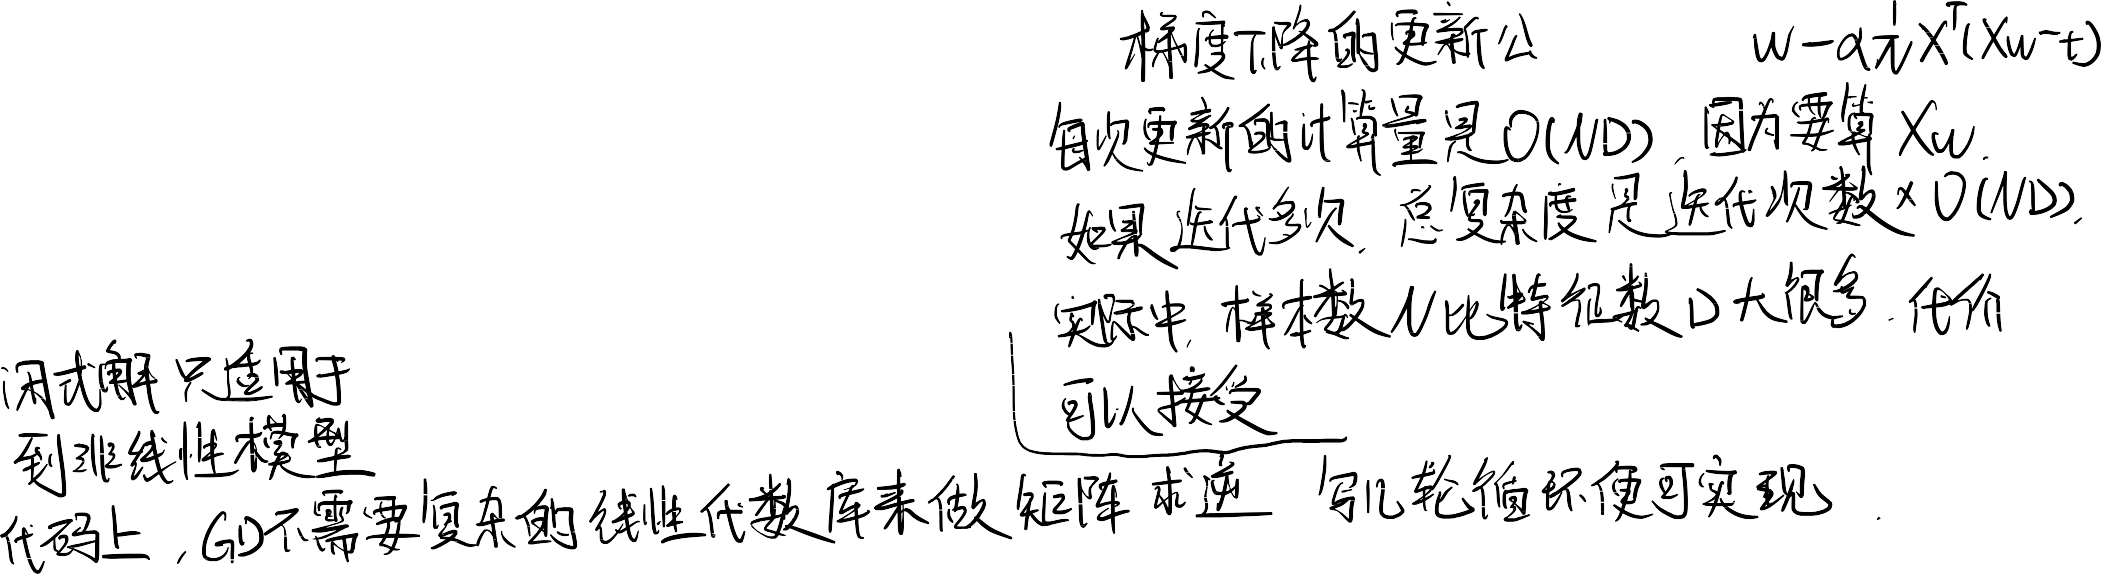 梯度下降的更新公 w-α\frac{1}{N}X^T(Xw-t)
每次更新的计算量是O(ND),因为要算Xw.
如果迭代多次,总复杂度是迭代次数×O(ND),
实际中,样本数N比特征数D大很多.代价
可以接受
闭式解只适用于
到非线性模型
代码上,GD不需要复杂的线性代数库来做矩阵求逆 写几轮循环便可实现.